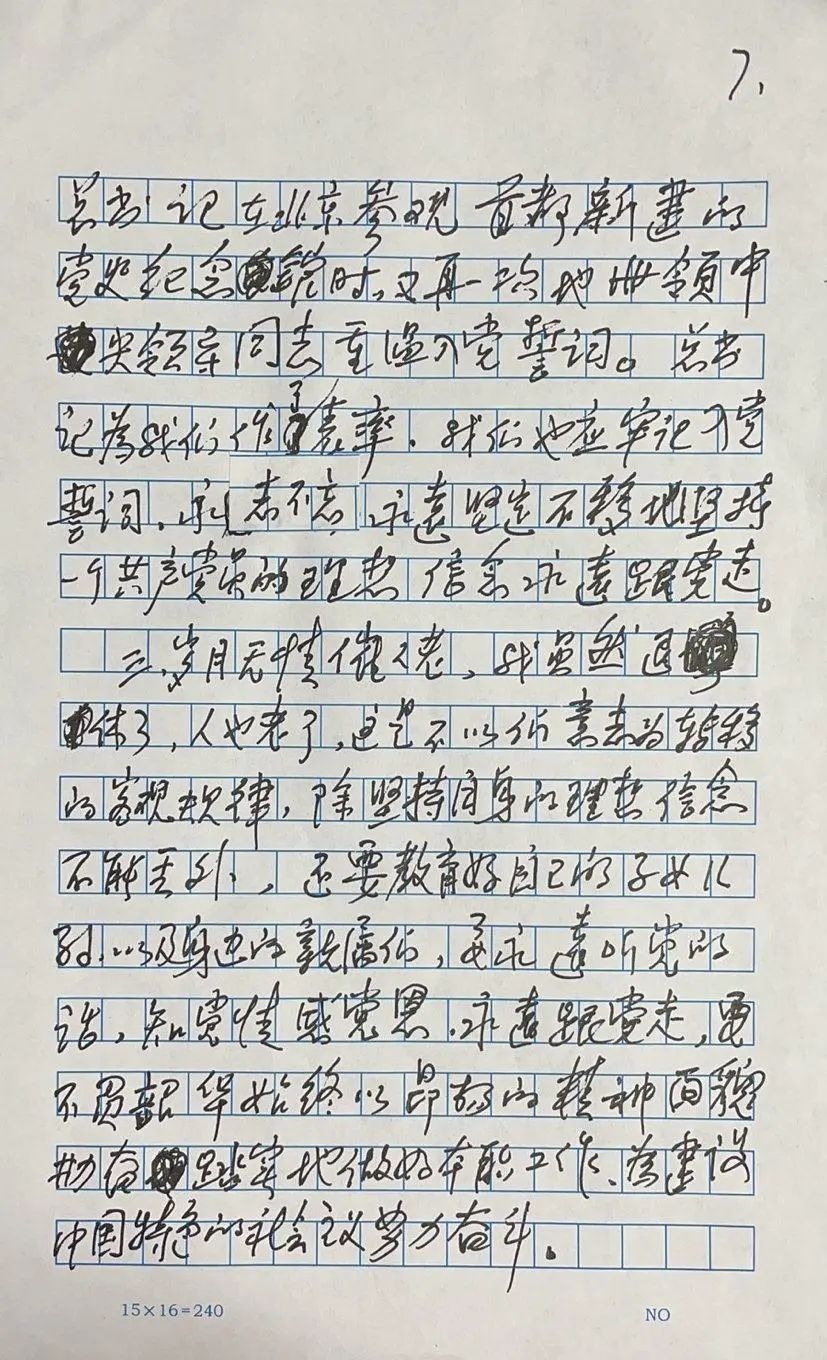 7.
总书记在北京参观首都新建的
党史纪念馆时,又再一次地带领中
央领导同志重温入党誓词。总书
记为我们作了表率.我们也应牢记入党
誓词.永志不忘.永远坚定不移地坚持
一个共产党员的理想信念永远跟党走。
三.岁月无情催人老,我虽然退
休了,人也老了,这是不以你意志为转移
的客观规律,除坚持自身的理想信念
不能丢外,还要教育好自己的子女儿
孙.以及身边的亲属们,要永远听党的
话,知党情感党恩.永远跟党走,要
不畏韶华始终以昂扬的精神面貌
勤奋踏实地做好本职工作、为建设
中国特色的社会主义努力奋斗.
15×16=240 NO